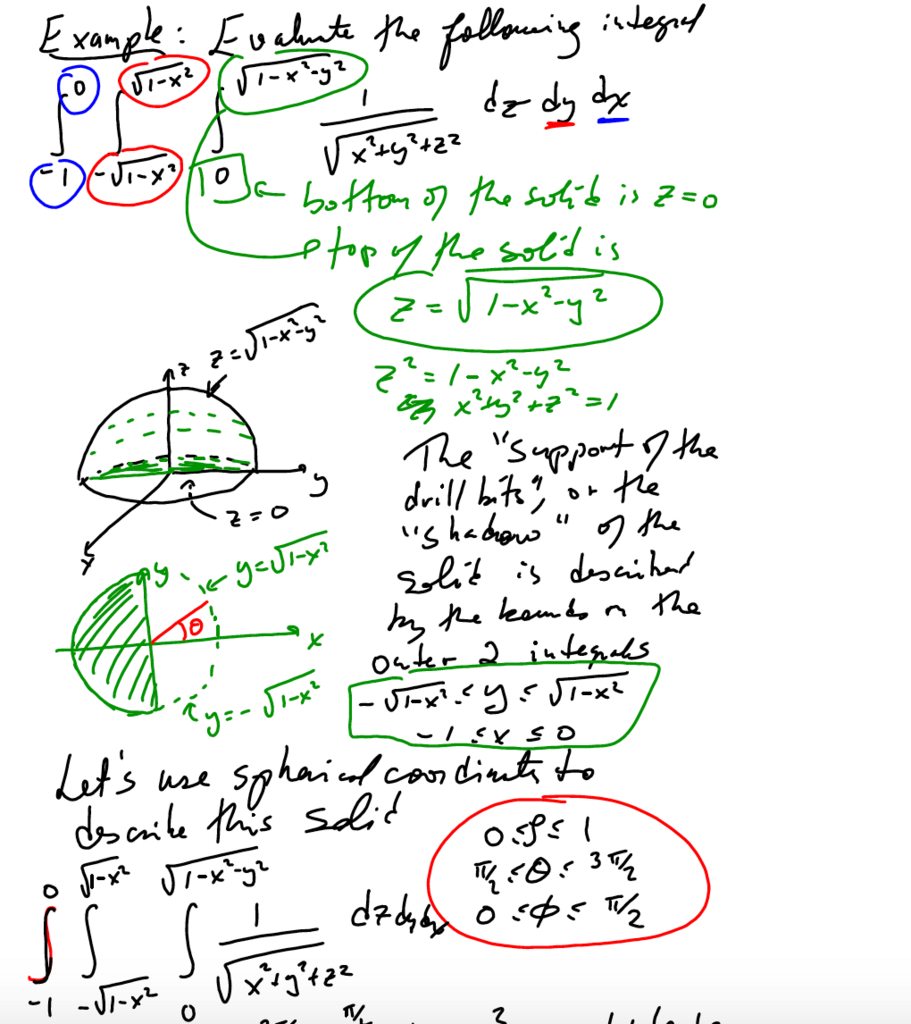 Example: Evaluate the following integral
∫_{-1}^{0} ∫_{-√(1-x²)}^{√(1-x²)} ∫_{0}^{√(1-x²-y²)} 1/√(x²+y²+z²) dz dy dx
bottom of the solid is z=0
top of the solid is
z = √(1-x²-y²)
z² = 1-x²-y²
x²+y²+z²=1
z=√(1-x²-y²)
z
y
z=0
x
The "support of the
drill bits", or the
"shadow" of the
solid is described
by the bounds on the
outer 2 integrals
-√(1-x²) ≤ y ≤ √(1-x²)
-1 ≤ x ≤ 0
y
y=√(1-x²)
θ
x
y=-√(1-x²)
Let's use spherical coordinates to
describe this solid
0 ≤ ρ ≤ 1
π/2 ≤ θ ≤ 3π/2
0 ≤ φ ≤ π/2
∫_{-1}^{0} ∫_{-√(1-x²)}^{√(1-x²)} ∫_{0}^{√(1-x²-y²)} 1/√(x²+y²+z²) dz dy dx